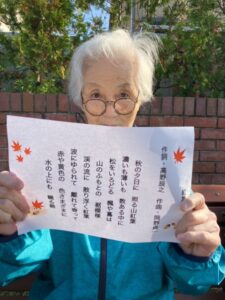 作詞:高野辰之　作曲:岡野貞一
秋の夕日に　照る山紅葉
濃いも薄いも　数ある中に
松をいろどる　楓や蔦は
山のふもとの　裾模様
渓の流に　散り浮く紅葉
波にゆられて　離れて寄って
赤や黄色の　色さまざまに
水の上にも　織る錦